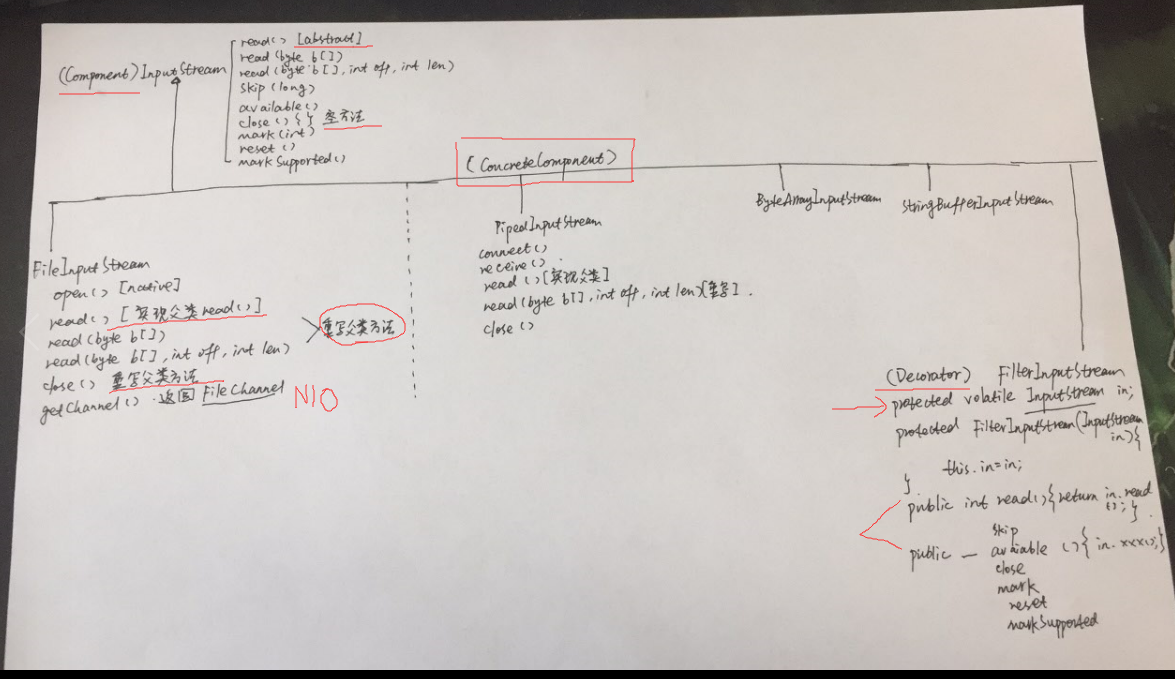 (Component) InputStream
read() [abstract]
read(byte b[])
read(byte b[], int off, int len)
skip(long)
available()
close(){ } 空方法
mark(int)
reset()
markSupported()
(ConcreteComponent)
FileInputStream
open() [native]
read() [实现父类read()]
read(byte b[])
read(byte b[], int off, int len)
重写父类方法
close() 重写父类方法
getChannel() . 返回 FileChannel
NIO
PipedInputStream
connect()
receive() .
read() [实现父类]
read(byte b[], int off, int len)[重写] .
close()
ByteArrayInputStream
StringBufferInputStream
(Decorator) FilterInputStream
protected volatile InputStream in;
protected FilterInputStream(InputStream
in){
this.in=in;
}
public int read(){return in.read
(); } .
skip
public — avaiable (){ in.xxx();}
close
mark
reset
markSupported